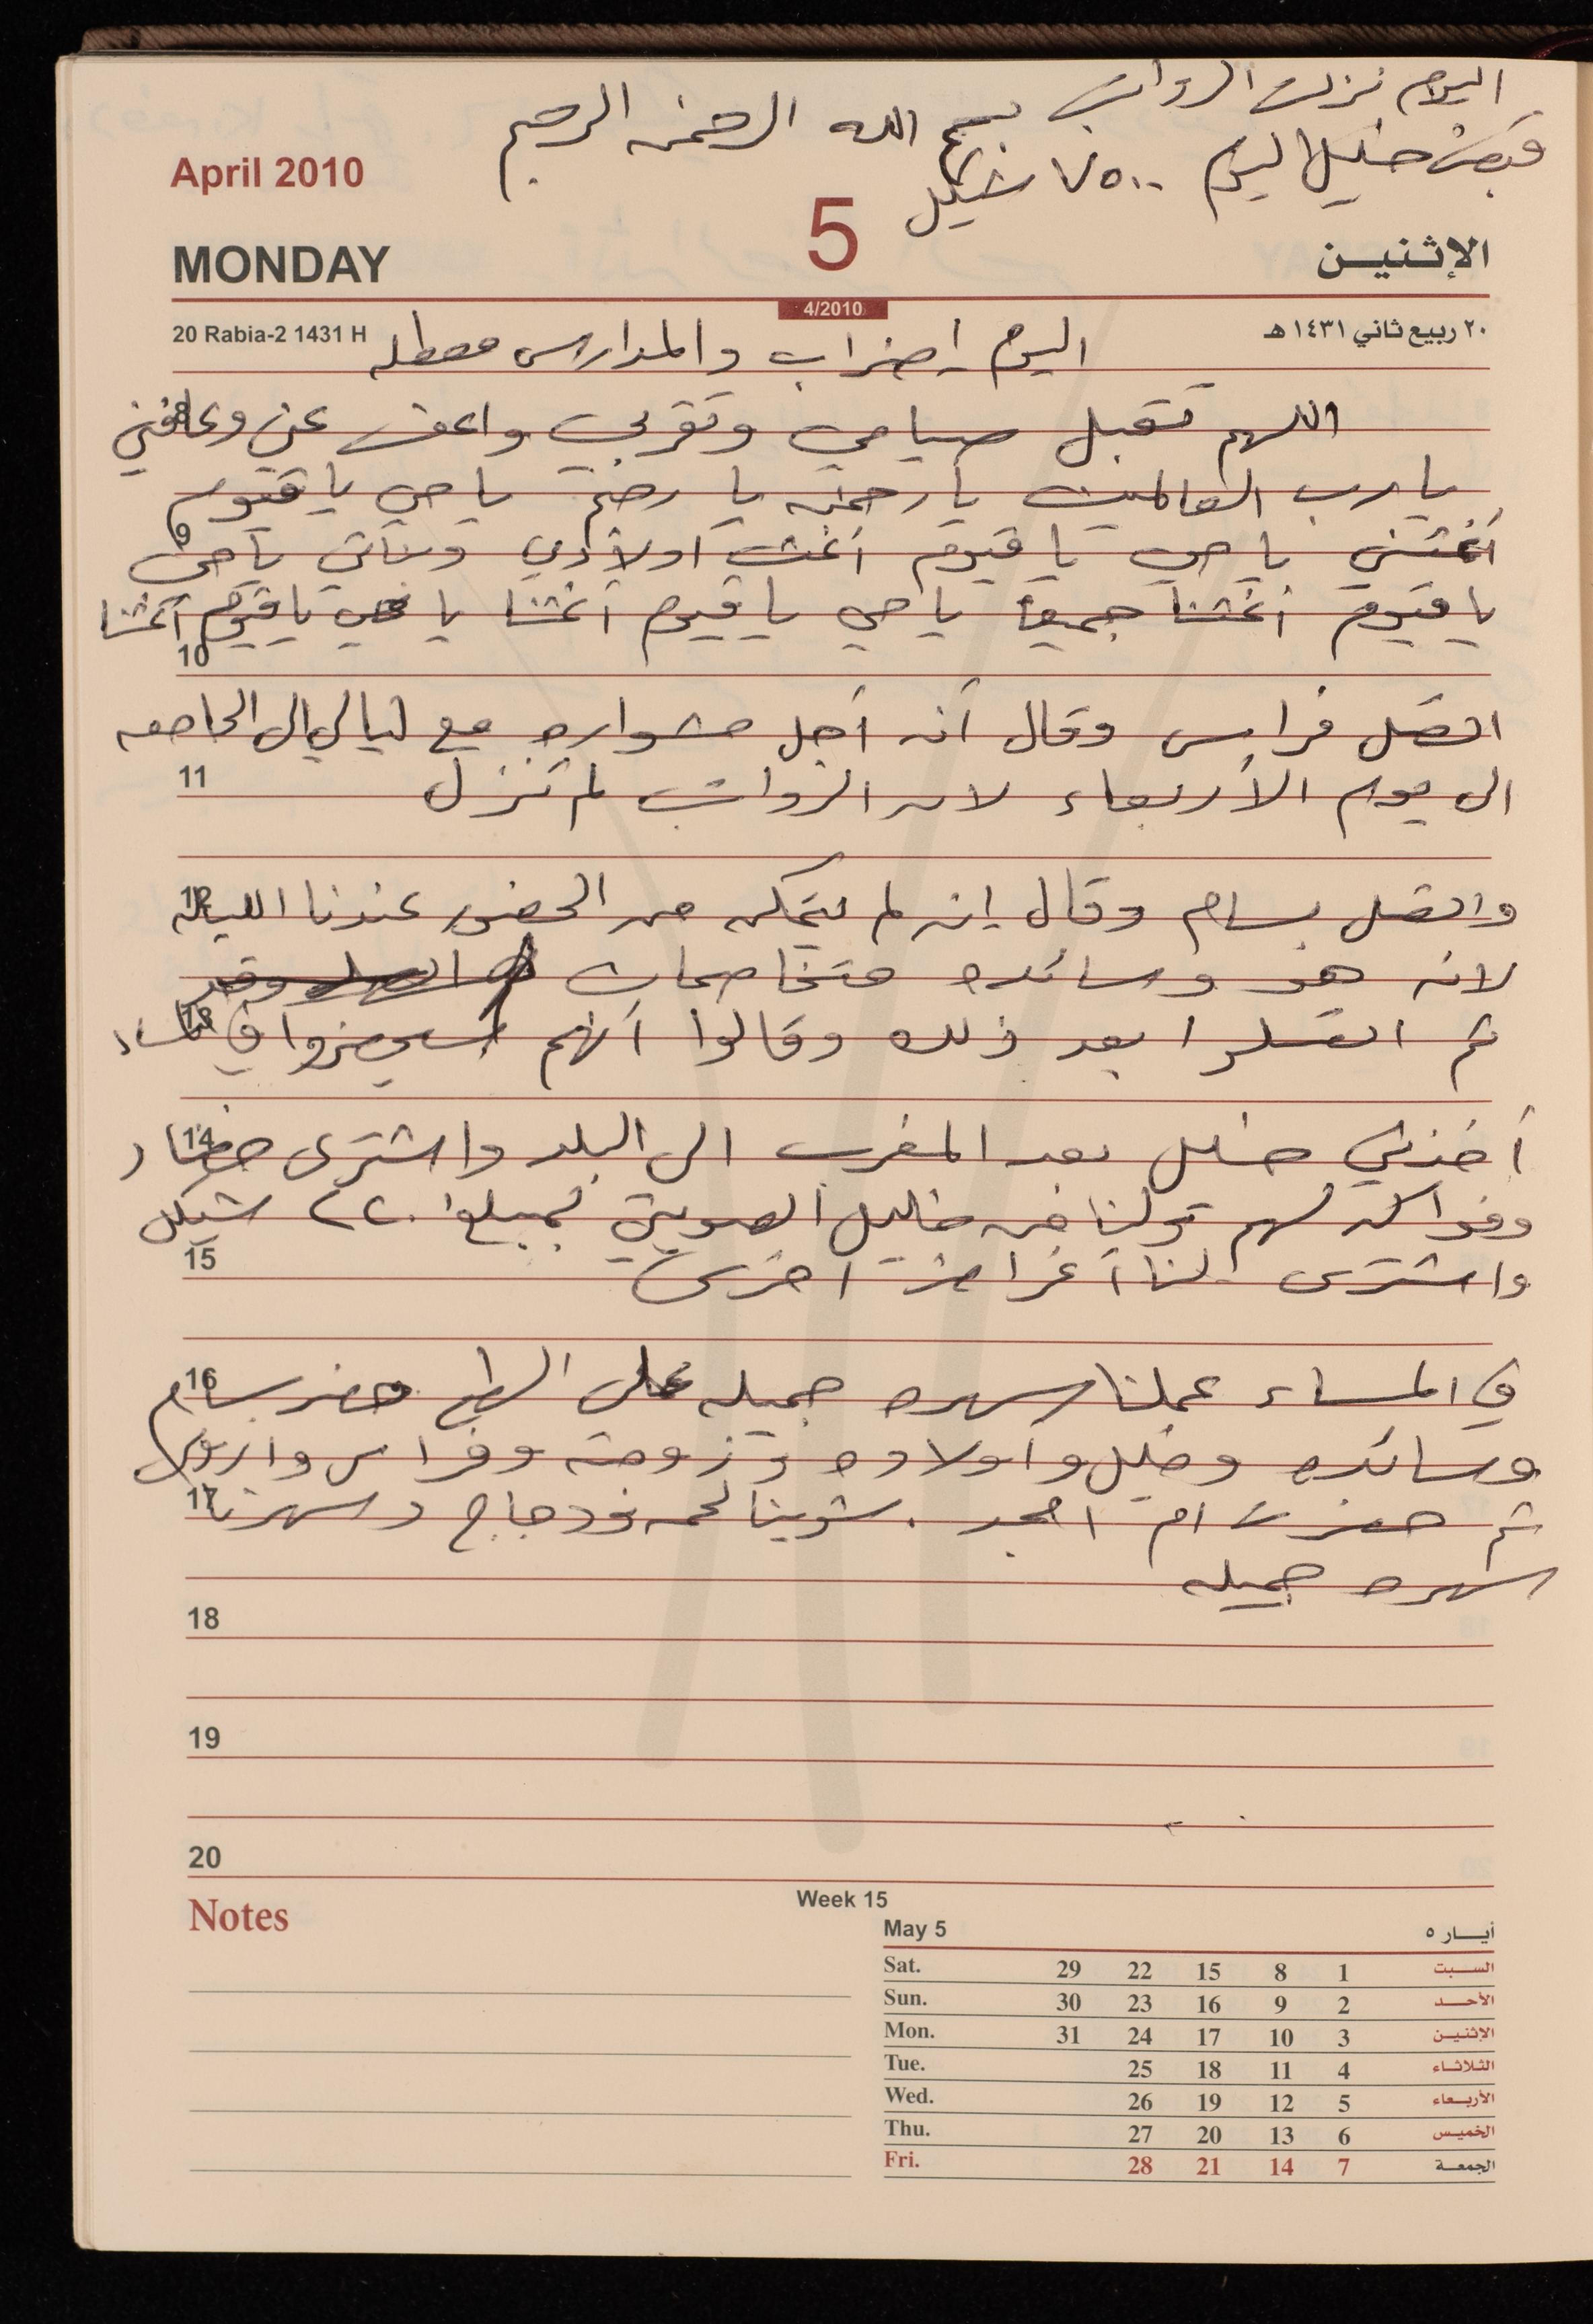 اليوم نزلت الرواتب
بسم الله الرحمن الرحيم
قبضت خليل اليوم ٧٥٠٠ شيكل
April 2010
5
MONDAY
الإثنين
4/2010
20 Rabia-2 1431 H
٢٠ ربيع ثاني ١٤٣١ هـ
اليوم إضراب والمدارس معطله
8
اللهم تقبل صيامي وتقربي واعف عني وعافني
يا رب العالمين يا رحمن يا رحيم يا حي يا قيوم
9
أغثني يا حي يا قيوم أغث اولادي وبناتي يا حي
يا قيوم أغثنا جميعا يا حي يا قيوم أغثنا يا حي يا قيوم أغثنا
10
اتصل فراس وقال أنه أجل مشواره مع ليالي الى الجامعه
11
الى يوم الأربعاء لان الرواتب لم تنزل
12
واتصل بسام وقال إنه لم يتمكن من الحضور عندنا الليله
لانه هو وسائده متخاصمان
13
ثم اتصلوا بعد ذلك وقالوا أنهم سيحضروا في المساء
14
أخذني خليل بعد المغرب الى البلد واشترى خضار
وفواكه لهم ولنا من خليل الصويتي بمبلغ ٢٢٠ شيكل
15
واشترى لنا أغراض أخرى
16
في المساء عملنا سهره جميله على السطح حضر بسام
وسائده وخليل وأولاده وزوجته وفراس واروى
17
ثم حضرت ام امجد . شوينا لحمه ودجاج وسهرنا
سهره جميله
18
19
20
Notes
Week 15
May 5
أيـار ٥
Sat. 29 22 15 8 1 السبت
Sun. 30 23 16 9 2 الأحد
Mon. 31 24 17 10 3 الإثنين
Tue. 25 18 11 4 الثلاثاء
Wed. 26 19 12 5 الأربعاء
Thu. 27 20 13 6 الخميس
Fri. 28 21 14 7 الجمعة